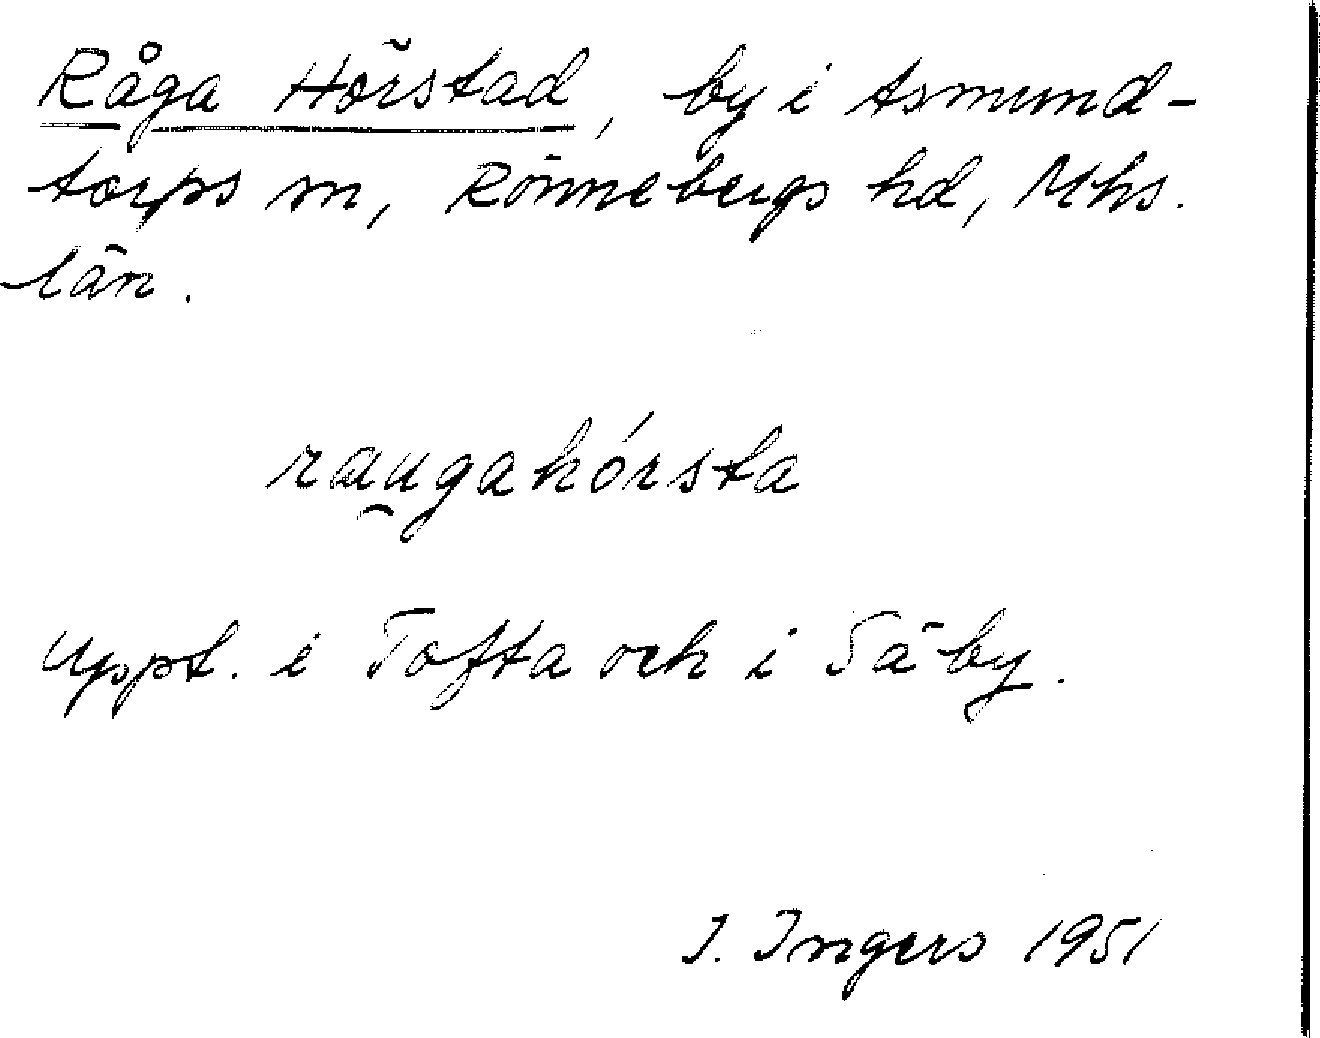 Råga Hörstad, by i Asmund-
torps sn, Rönnebergs hd, Mhs.
län.
rau̯gahórsta
Uppt. i Tofta och i Säby.
I. Ingers 1951